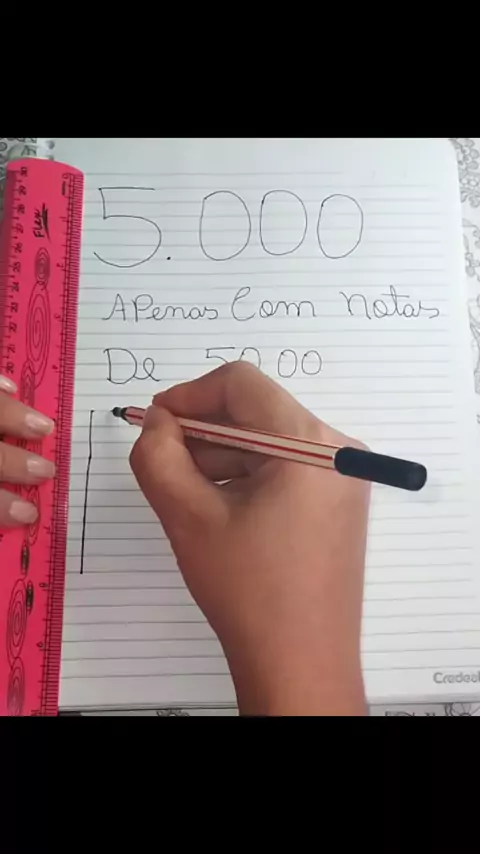 5.000
APenas Com Notas
De 50,00
Credeal
Flex